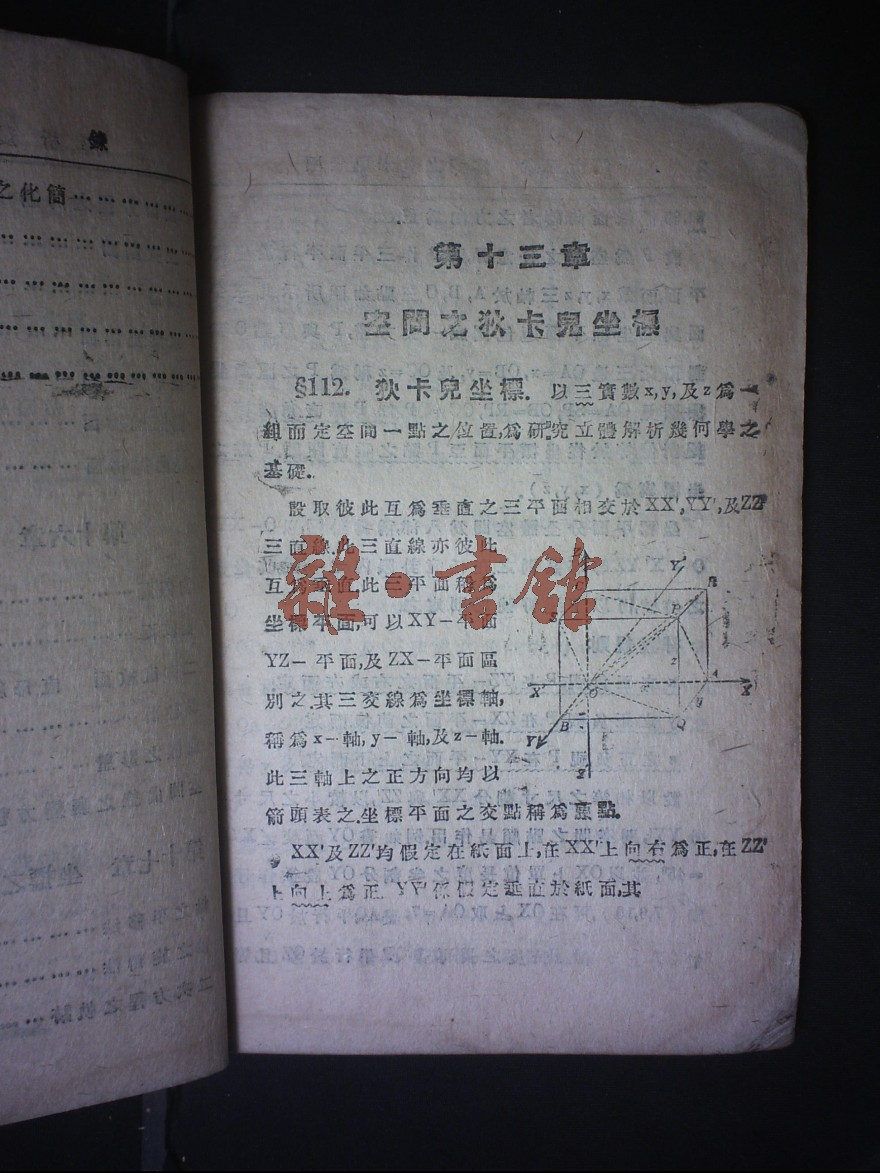 錄
之化簡
第十六章
第十三章
空間之狄卡兒坐標
§112. 狄卡兒坐標. 以三實數x,y,及z爲一
組而定空間一點之位置,爲研究立體解析幾何學之
基礎.
設取彼此互爲垂直之三平面相交於XX',YY',及ZZ'
三直線.此三直線亦彼此
互爲垂直.此三平面稱爲
坐標平面,可以XY-平面
YZ-平面,及ZX-平面區
別之.其三交線爲坐標軸,
稱爲x-軸,y-軸,及z-軸.
此三軸上之正方向均以
箭頭表之.坐標平面之交點稱爲原點.
XX'及ZZ'均假定在紙面上,在XX'上向右爲正,在ZZ'
上向上爲正.YY'係假定垂直於紙面,其
Y'
P
X'
O
X
B
Q
Y
雜·書館